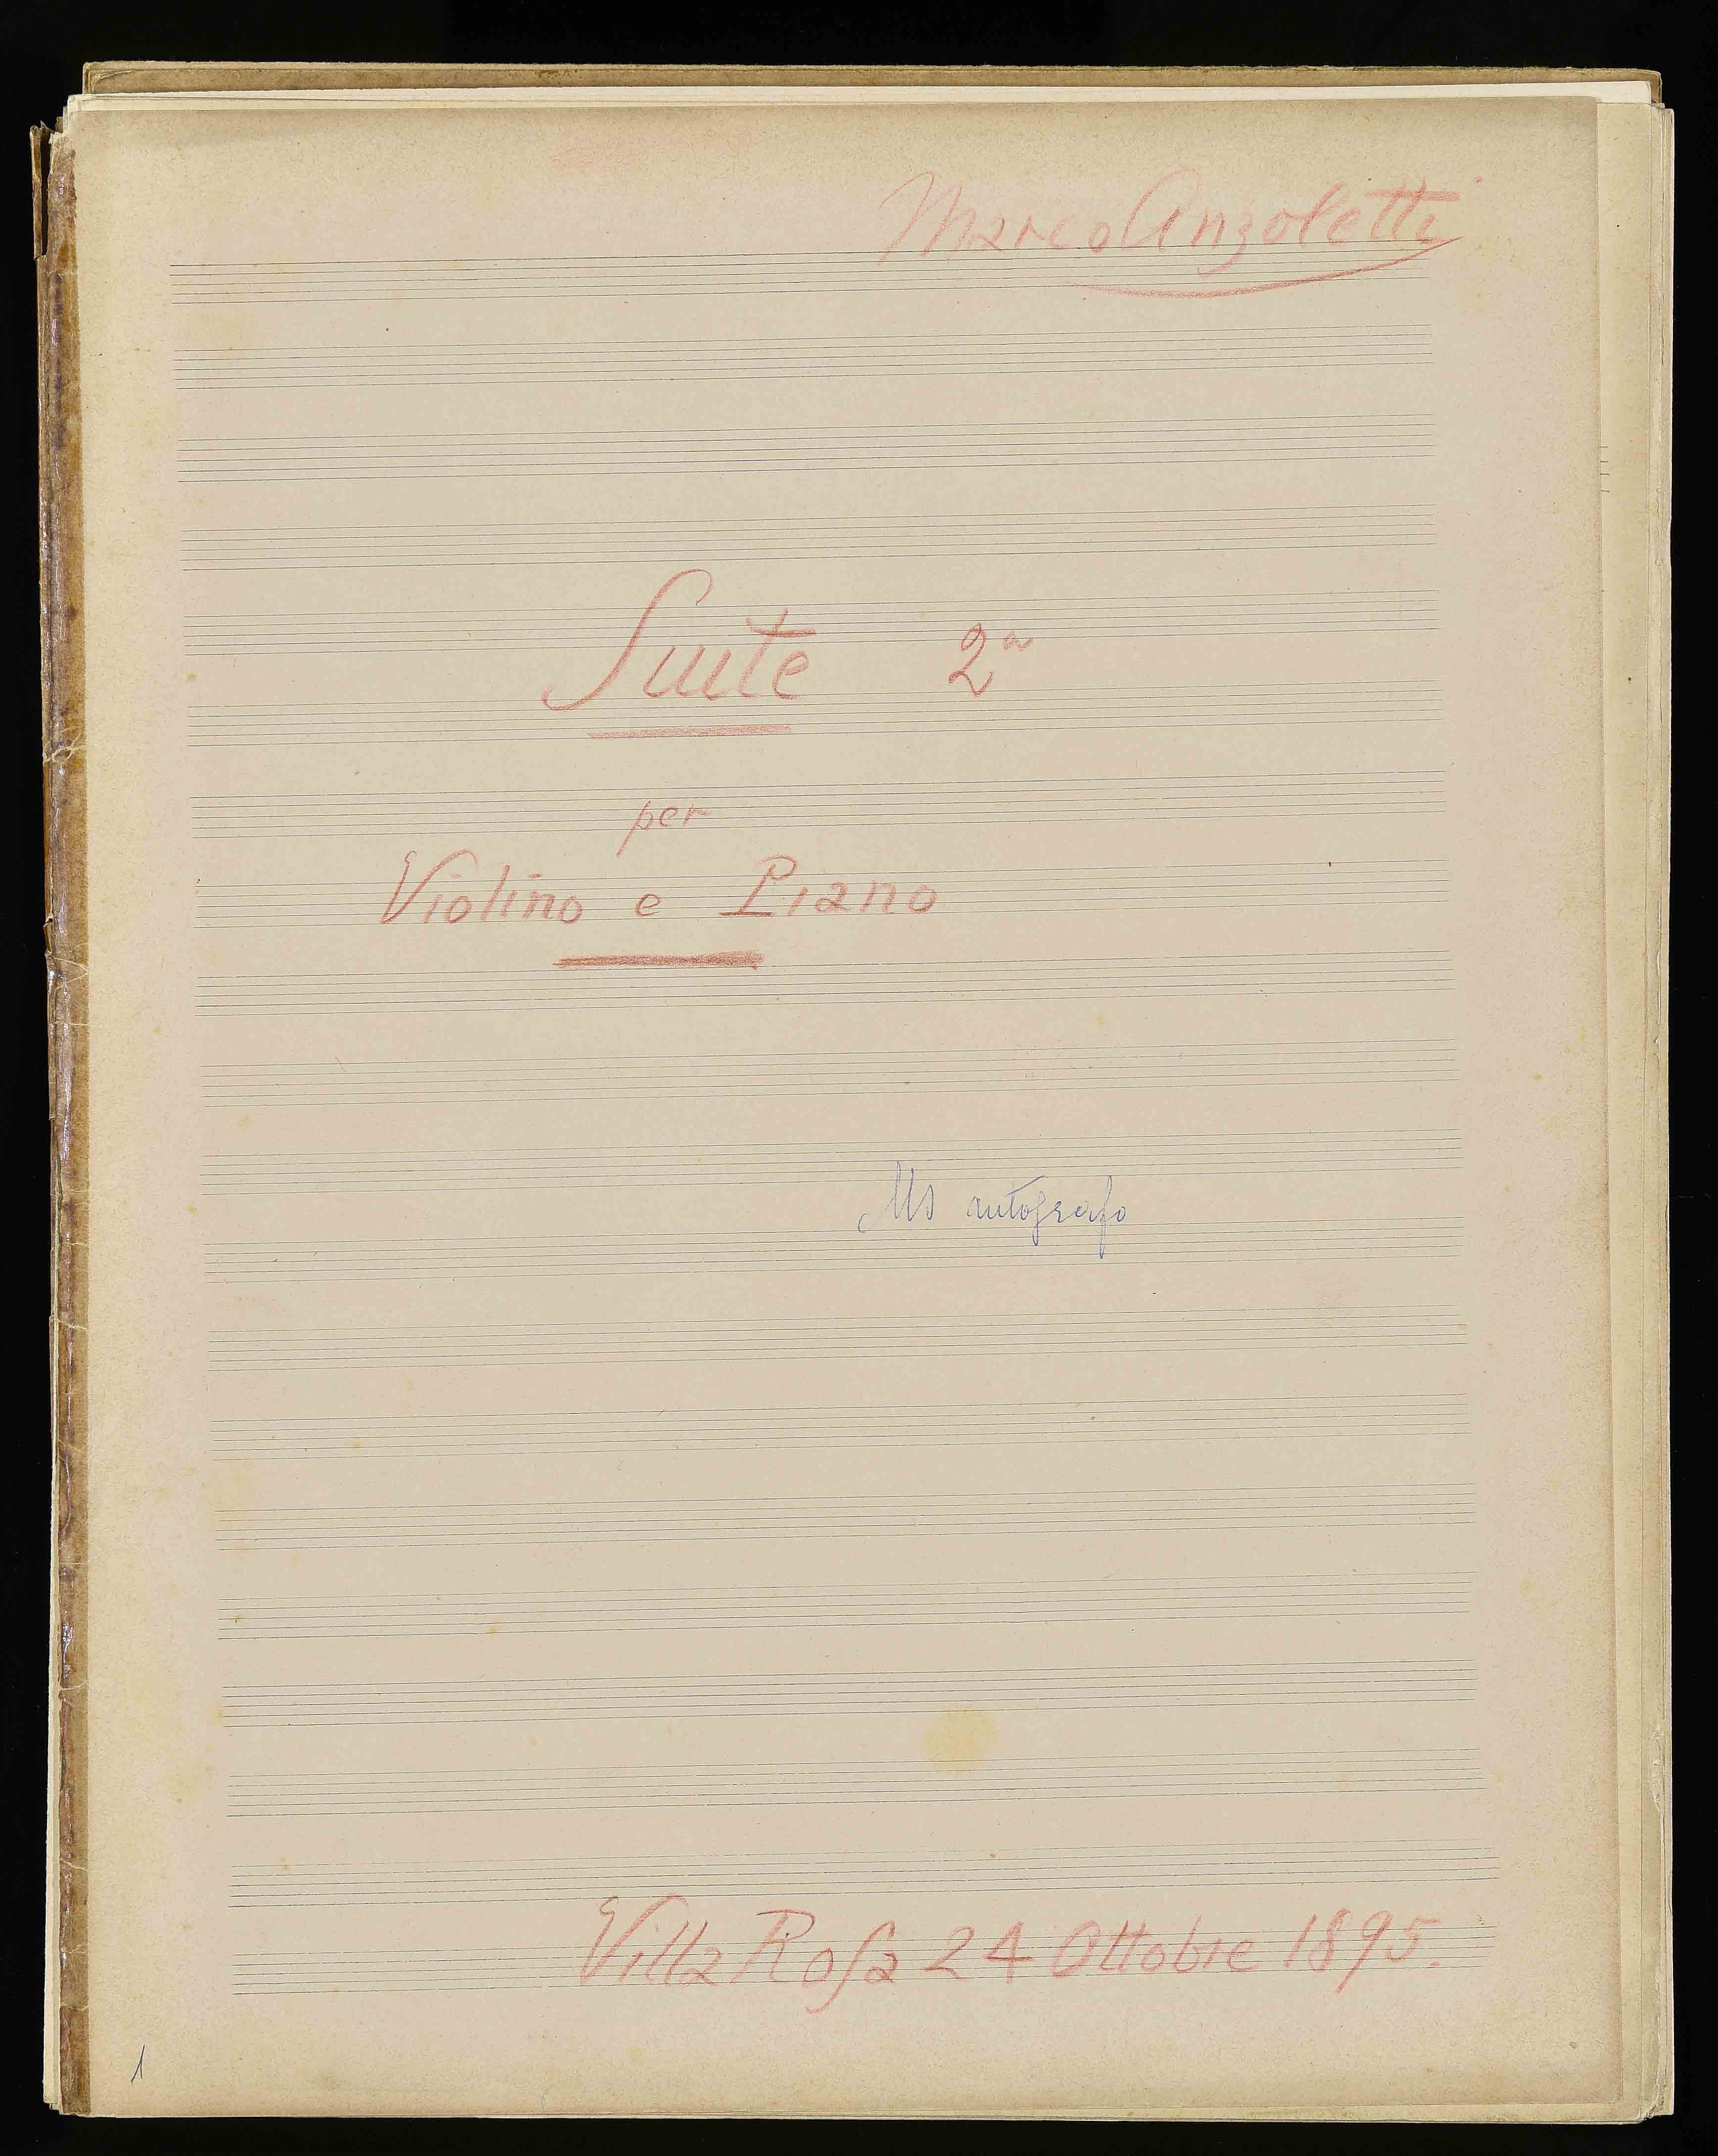 Marco Anzoletti
Suite 2a
per
Violino e Piano
Ms autografo
Villa Rosa 24 Ottobre 1895.
1